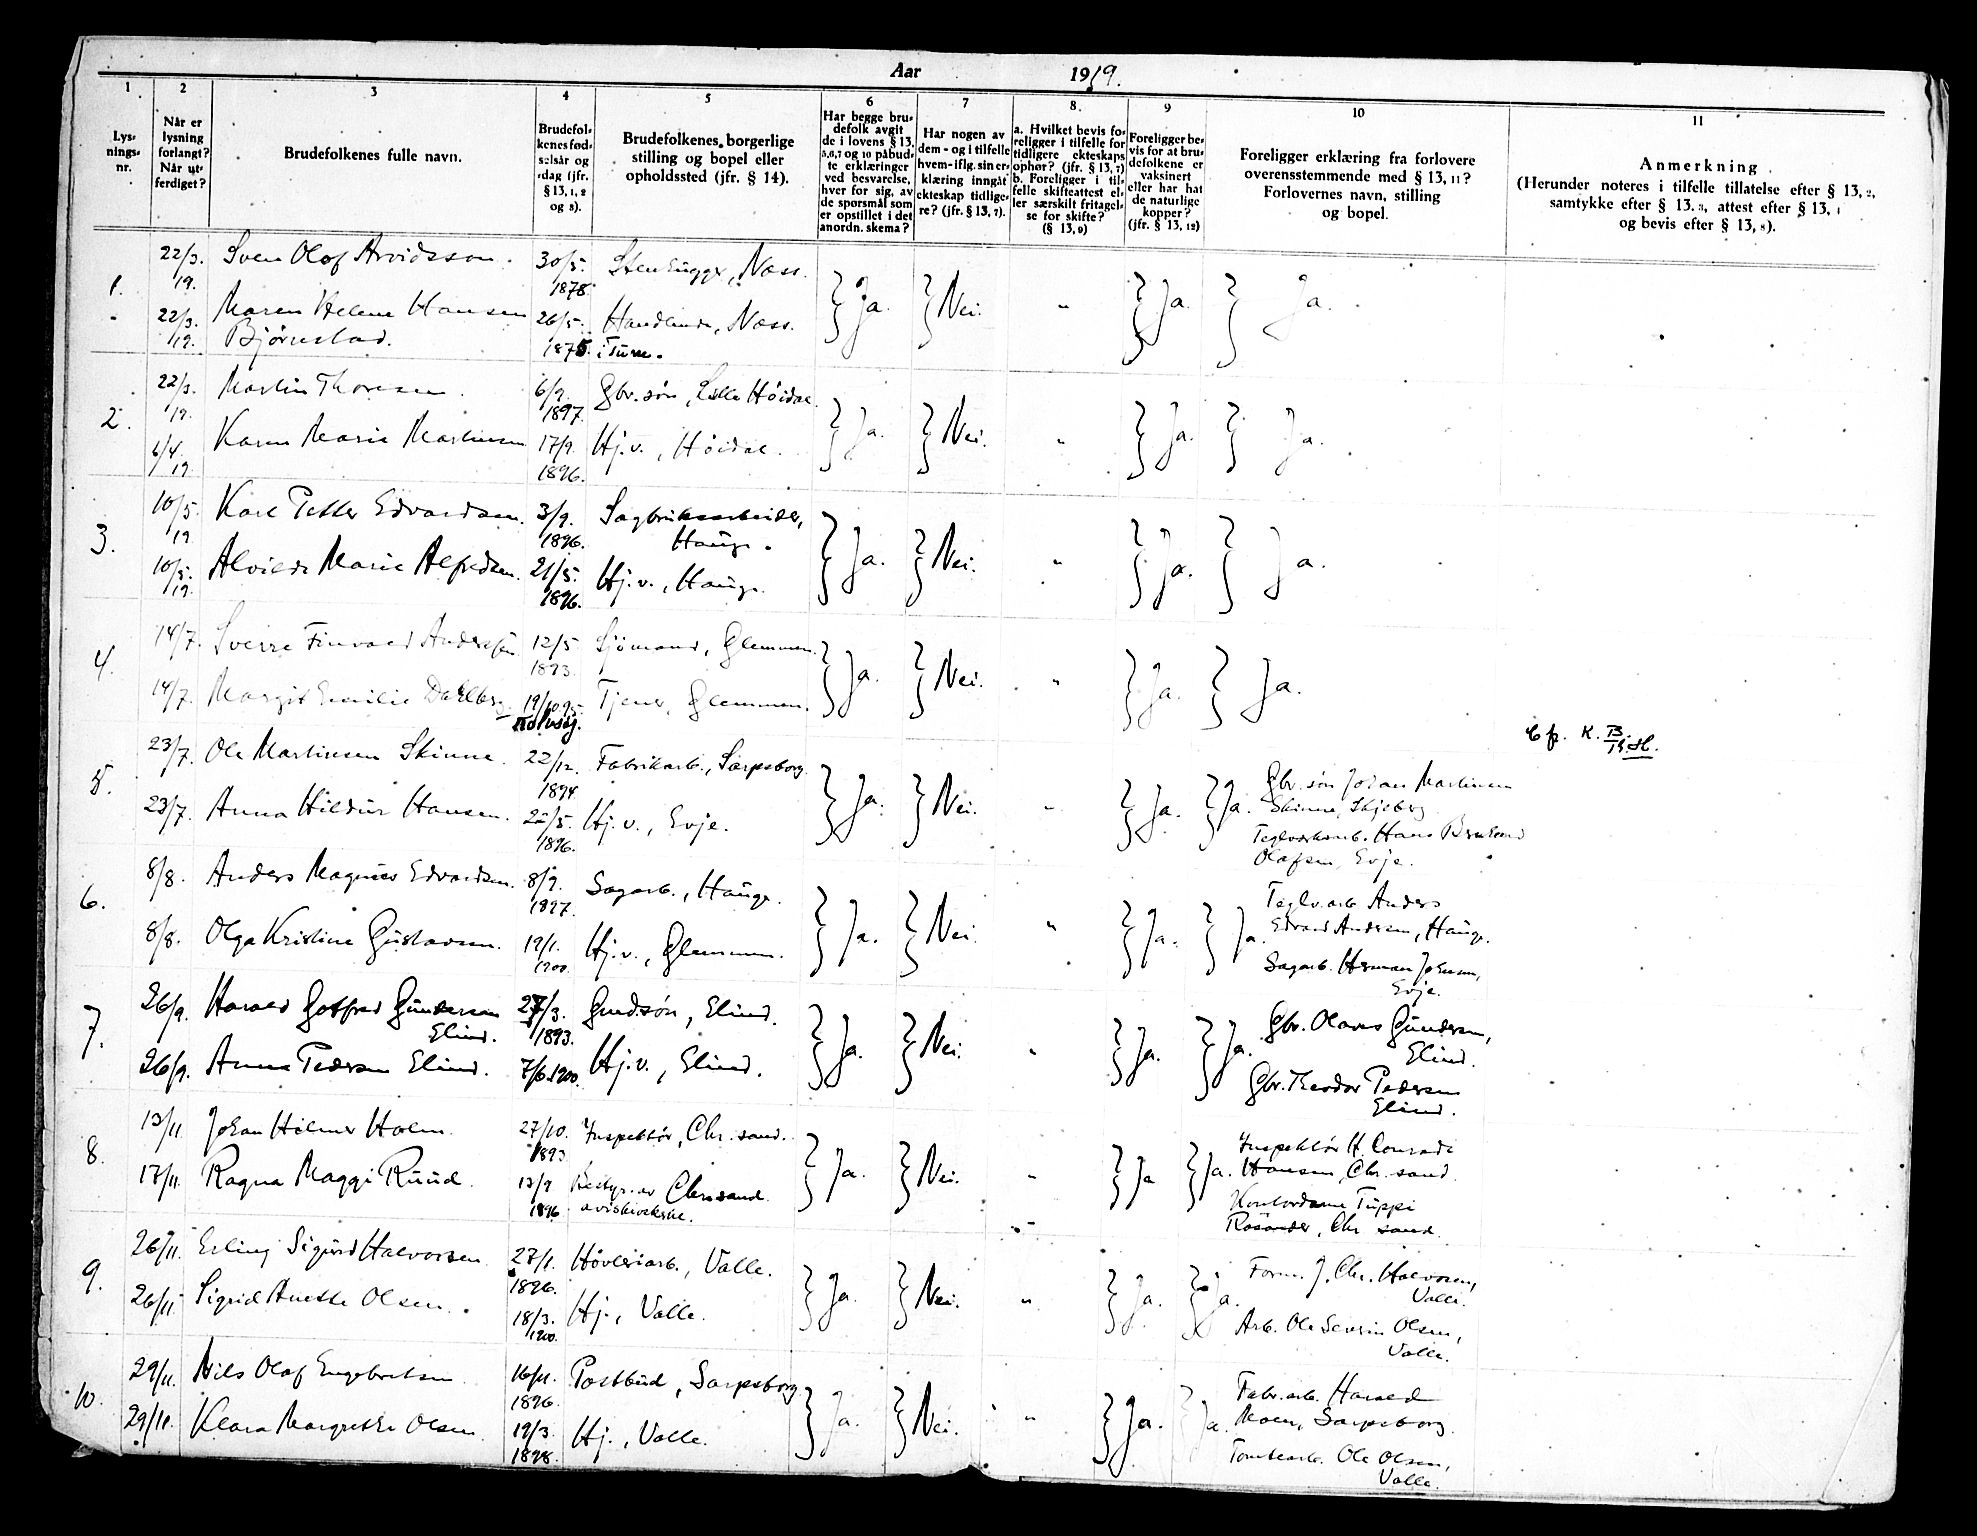 Aar 1919.
1 2 3 4 5 6 7 8. 9 10 11
Lys-
nings-
nr.
Når er
lysning
forlangt?
Når ut-
ferdiget?
Brudefolkenes fulle navn.
Brudefol-
kenes fød-
selsår og
-dag (jfr.
§ 13, 1, 2
og 8).
Brudefolkenes borgerlige
stilling og bopel eller
opholdssted (jfr. § 14).
Har begge bru-
defolk avgit
de i lovens § 13,
5,6,7 og 10 påbud-
te erklæringer
ved besvarelse,
hver for sig, av
de spørsmål som
er opstillet i det
anordn. skema?
Har nogen av
dem - og i tilfelle
hvem - iflg. sin er-
klæring inngåt
ekteskap tidlige-
re? (jfr. § 13, 7).
a. Hvilket bevis fo-
religger i tilfelle for
tidligere ekteskaps
ophør? (jfr. § 13, 7)
b. Foreligger i til-
felle skifteattest el-
ler særskilt fritagel-
se for skifte?
(§ 13, 9)
Foreligger be-
vis for at bru-
defolkene er
vaksinert
eller har hat
de naturlige
kopper?
(jfr. § 13, 12)
Foreligger erklæring fra forlovere
overensstemmende med § 13, 11?
Forlovernes navn, stilling
og bopel.
Anmerkning.
(Herunder noteres i tilfelle tillatelse efter § 13, 2,
samtykke efter § 13. 3, attest efter § 13, 1
og bevis efter § 13, 8).
1. 22/3. 19. Sven Olof Arvidsson. 30/5. 1878. Stenhugger, Næss. Ja. Nei. " Ja. Ja.
22/3. 19. Maren Helene Hansen 26/5. Handlende, Næss.
Bjørnstad. 1875. i Tune.
2. 22/3. 19. Martin Thoresen. 6/9. 1897. Gbr. søn, Lille Höidal. Ja. Nei. " Ja. Ja.
6/4. 19. Karen Marie Martinsen 17/9. 1896. Hj.v., Höidal.
3. 10/5. 19. Karl Petter Edvardsen. 3/9. 1896. Sagbruksarbeider, Ja. Nei. " Ja. Ja.
Hauge.
10/5. 19. Alvilde Marie Alfredsen. 21/5. 1896. Hj.v., Hauge.
4. 14/7. Sverre Finvald Anderssen 12/5 1893. Sjömand, Glemmen. Ja. Nei. " Ja. Ja.
14/7. Margit Emilie Dahlberg. 19/10.95. Tjener, Glemmen.
5. 23/7. Ole Martinsen Skinne. 22/12. 1894. Fabrikarb., Sarpsborg. Ja. Nei. " Ja. Ja. Gbr. søn Johan Martinsen
Skinne, Skjeberg
23/7. Anna Hildur Hansen. 22/5. 1896. Hj.v., Evje. Teglverksarb. Hans
Olafsen, Evje.
6. 8/8. Anders Magnus Edvardsen. 8/9. 1897. Sagarb., Hauge. Ja. Nei. " Ja. Ja. Teglv.arb Anders
Edvard Andersen, Hauge.
8/8. Olga Kristine Gustavsen. 19/1. 1900. Hj.v., Glemmen. Sagarb. Herman Johnsen,
Evje.
7. 26/9. Harald Gotfred Gundersen 27/3. 1893. Grudsön, Elind. Ja. Nei. " Ja. Ja. Gbr. Olaves Gundersen,
Elind. Elind.
26/9. Anna Pedersen Elind. 7/6.1900. Hj.v., Elind. Gbr. Theodor Pedersen
Elind.
8. 13/11 Johan Hilmer Holm. 27/10. 1893. Inspektör, Chr.sand. Ja. Nei. " Ja Ja. Inspektör H. Conradi
Hansen, Chr. sand.
17/11. Ragna Maggi Ruud. 13/9 1896. Bestyr. av Chr.sand Kontordame Tuppi
Rosander, Chr sand.
9. 26/11. Erling Sigurd Halvorsen. 27/1. 1896. Høvleriarb., Valle. Ja. Nei. " Ja. Ja. Form. J. Chr. Halvorsen,
Valle.
26/11 Sigrid Anette Olsen. 18/3. 1900. Hj., Valle. Arb. Ole Severin Olsen,
Valle.
10. 29/11. Nils Olaf Engebretsen. 16/11. 1896. Postbud, Sarpsborg Ja. Nei. " Ja. Ja. Fabr.arb. Harald
Moen, Sarpsborg.
29/11. Klara Margrethe Olsen. 19/3. 1898. Hj., Valle. Tomtearb. Ole Olsen,
Valle.